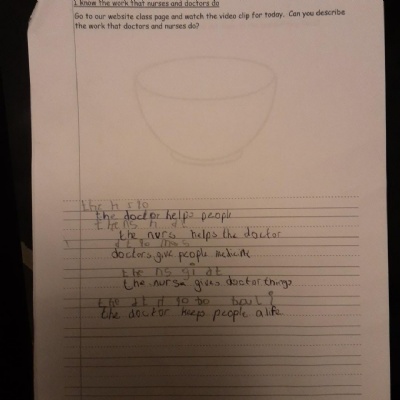 I know the work that nurses and doctors do
Go to our website class page and watch the video clip for today. Can you describe
the work that doctors and nurses do?
the h s to
the doctor helps people
the ns h dt
the nurs helps the doctor
dt
doctors give people medicine
the ns gi dt
the nurse gives doctor things
dt
the doctor keeps people alife